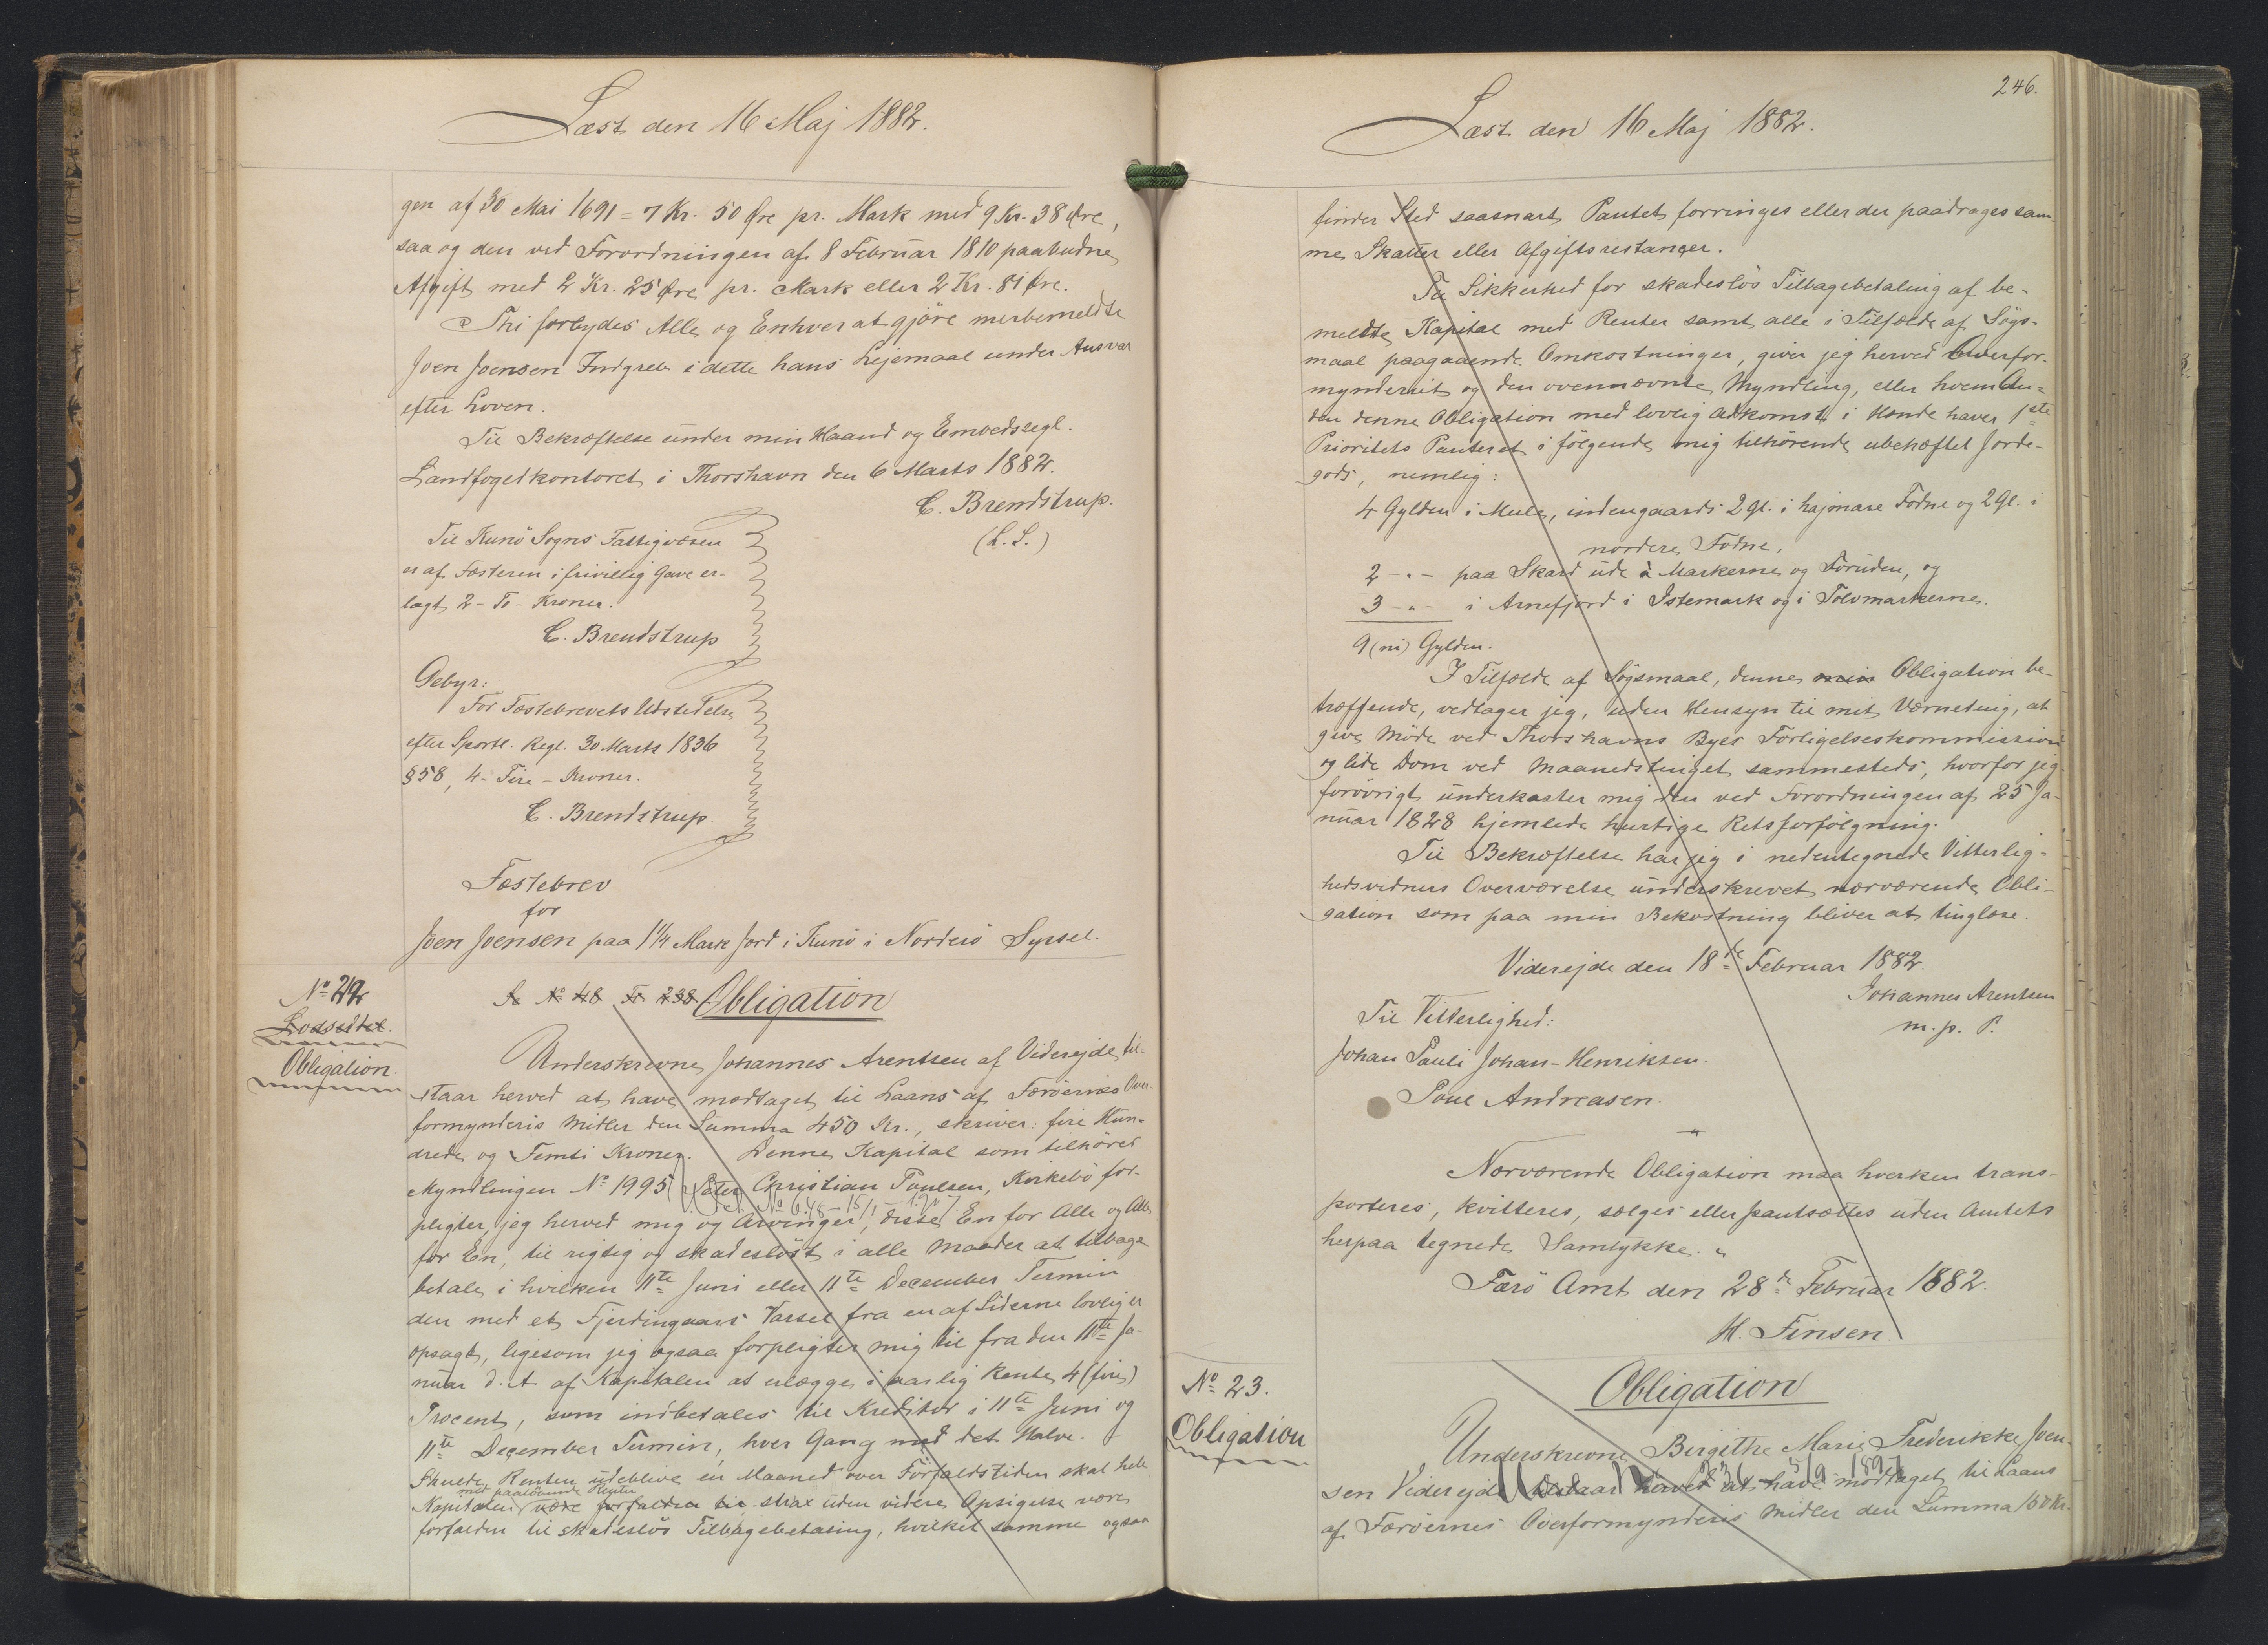 Læst den 16 Maj 1882.
gen af 30 Mai 1691 = 7 Kr. 50 Øre pr. Mark med 9 Kr. 38 Øre,
saa og den ved Forordningen af 8 Februar 1810 paabudne
Afgift med 2 Kr. 25 Øre pr. Mark eller 2 Kr. 81 Øre.
Thi forbydes Alle og Enhver at gjöre merbemeldte
Joen Joensen Indgreb i dette hans Lejemaal under Ansvar
efter Loven.
Til Bekræftelse under min Haand og Embedssegl.
Landfogedkontoret i Thorshavn den 6 Marts 1882.
C. Brendstrup.
(L. S.)
Til Kunö Sogns Fattigvæsen
er af Fæsteren i frivillig Gave er-
lagt 2 - To - Kroner.
C. Brendstrup
Gebyr:
For Fæstebrevets Udstedelse
efter Sportl. Regl. 30 Marts 1836
§ 58, 4 - Fire - Kroner.
C. Brendstrup
Fæstebrev
for
Joen Joensen paa 1 1/4 Mark Jord i Kunö i Norderö Syssel.
No 22
Obligation.
No 48 Fo 238 Obligation
Underskrevne Johannes Arentsen af Viderejde til-
staar herved at have modtaget til Laans af Færöernes Over-
formynderis Midler den Summa 450 Kr., skriver: fire Hun-
drede og Femti Kroner. Denne Kapital som tilhörer
Myndlingen No 1995 Peter Christian Poulsen, Kirkebö for-
pligter jeg herved mig og Arvinger, disse En for Alle og Alle
for En, til rigtig og skadeslöst i alle Maader at tilbage
betale i hvilken 11te Juni eller 11te December Termin
den med et Fjerdingaars Varsel fra en af Siderne lovlig er
opsagt, ligesom jeg ogsaa forpligter mig til fra den 11te Ja-
nuar d. A. af Kapitalen at erlægge i aarlig Rente 4 (fire)
Procent, som indbetales til Kreditor i 11te Juni og
11te December Termin, hver Gang med det Halve.
Skulde Renten udeblive en Maaned over Forfaldstiden skal hele
med paalöbende Renter
Kapitalen være forfalden til strax uden videre Opsigelse være
forfalden til skadeslös Tilbagebetaling, hvilket samme ogsaa
246.
Læst den 16 Maj 1882.
finder Sted saasnart Pantet forringes eller der paadrages sam-
me Skatter eller Afgiftsrestancer.
Til Sikkerhed for skadeslös Tilbagebetaling af be-
meldte Kapital med Renter samt alle i Tilfælde af Sögs-
maal paagaaende Omkostninger, giver jeg herved Overfor-
mynderiet og den ovennævnte Myndling, eller hvem An-
den denne Obligation med lovlig Adkomst i Hænde haver 1ste
Prioritets Panteret i fölgende mig tilhörende ubehæftet Jorde-
gods, nemlig:
4 Gylden i Mule, indengaards 2 Gl. i hajmare Todne og 2 Gl. i
nordere Todne,
2 - " - paa Skard ude á Markerne og Foruden, og
3 - " - i Arnefjord i Istemark og i Tolvmarkerne.
9 (ni) Gylden.
I Tilfælde af Sögsmaal, denne min Obligation be-
træffende, vedtager jeg, uden Hensyn til mit Værneting, at
give Möde ved Thorshavns Byes Forligelseskommission
og lide Dom ved Maanedstinget sammesteds, hvorfor jeg
forövrigt underkaster mig den ved Forordningen af 25 Ja-
nuar 1828 hjemlede hurtige Retsforfölgning.
Til Bekræftelse har jeg i nedentegnede Vitterlig-
hedsvidners Overværelse underskrevet nærværende Obli-
gation som paa min Bekostning bliver at tinglæse.
Viderejde den 18de Februar 1882.
Johannes Arentsen
m. p. P.
Til Vitterlighed:
Johan Pauli Johan-Henriksen.
Poul Andreasen.
Nærværende Obligation maa hverken trans-
porteres, kvitteres, sælges eller pantsættes uden Amtets
herpaa tegnede Samtykke.
Færö Amt den 28de Februar 1882.
H. Finsen.
No 23.
Obligation
Obligation
Underskrevne Birgithe Marie Frederikke Joen-
sen Viderejde tilstaar herved at have modtaget til Laans
af Færöernes Overformynderis Midler den Summa 150 Kr.